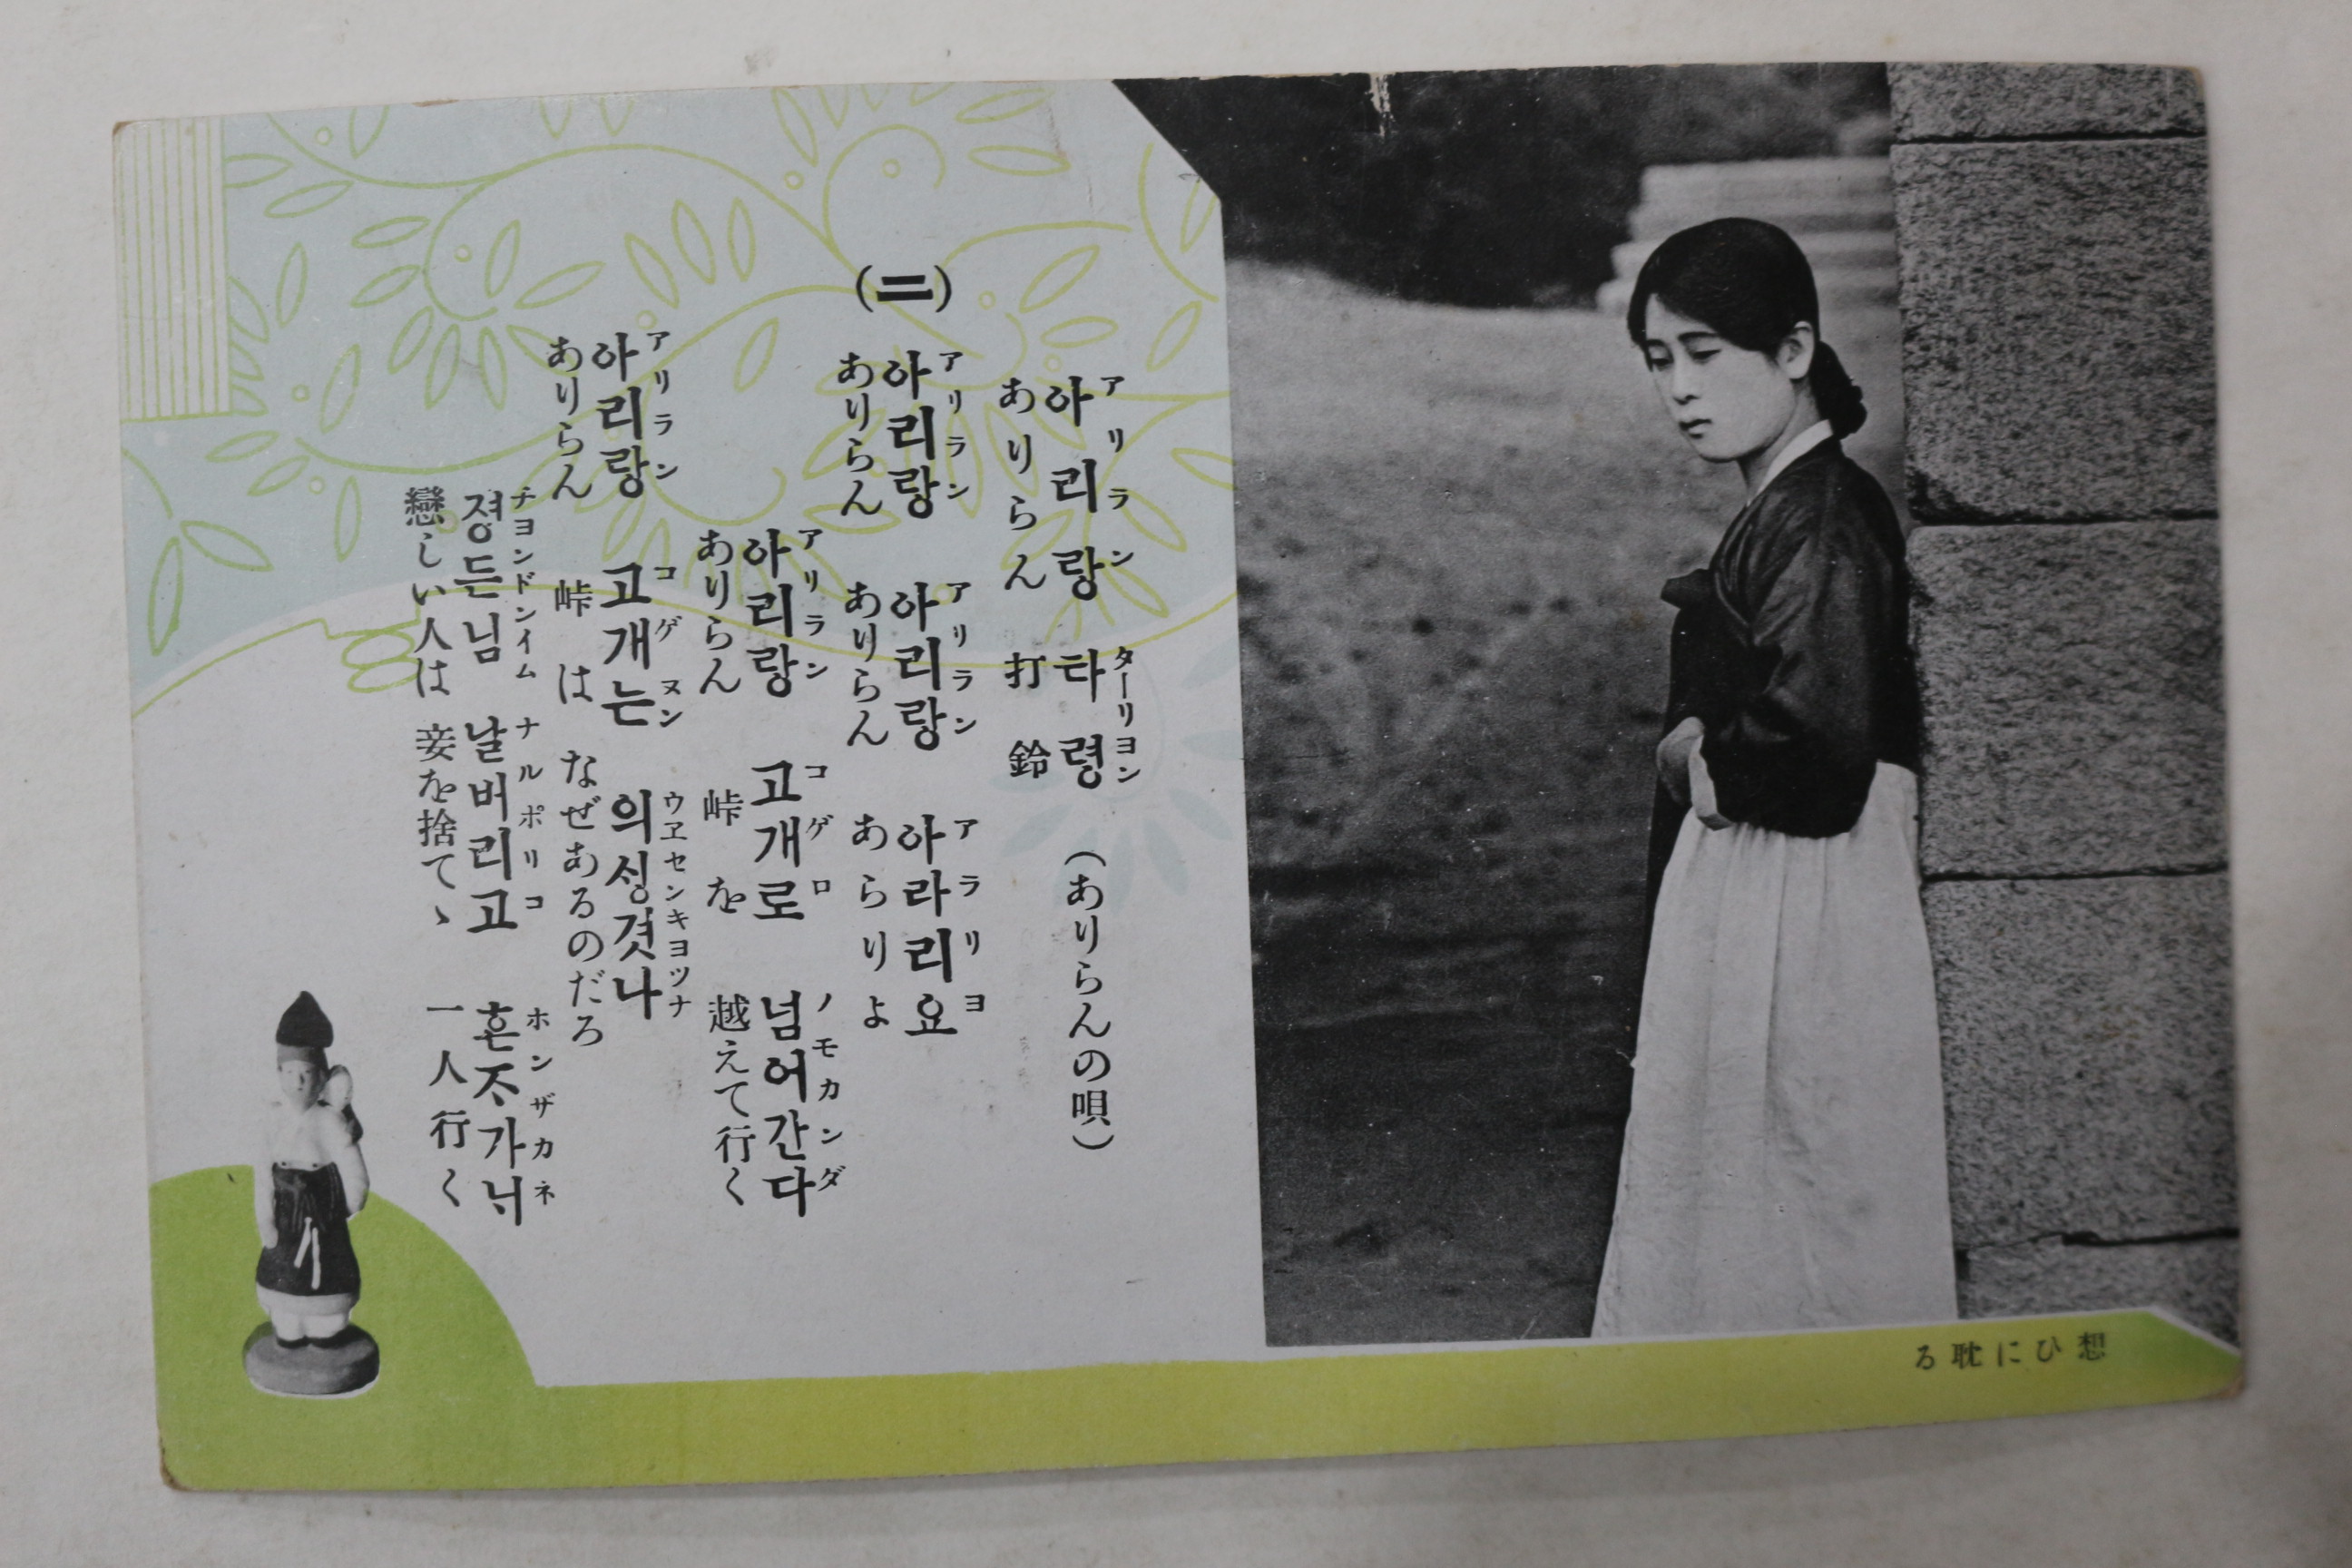 아리랑 타령 (ありらんの唄)
アリラン ターリヨン
ありらん 打鈴
(二)
아리랑 아리랑 아라리요
アリラン アリラン アラリヨ
ありらん ありらん あらりよ
아리랑 고개로 넘어간다
アリラン コゲロ ノモカンダ
ありらん 峠を 越えて行く
아리랑 고개는 의싱겻나
アリラン コゲヌン ウヱセンキヨツナ
ありらん 峠は なぜあるのだろ
졍든님 날버리고 혼ᄌᆞ가니
チヨンドンイム ナルポリコ ホンザカネ
戀しい人は 妾を捨てゝ 一人行く
想ひに耽る